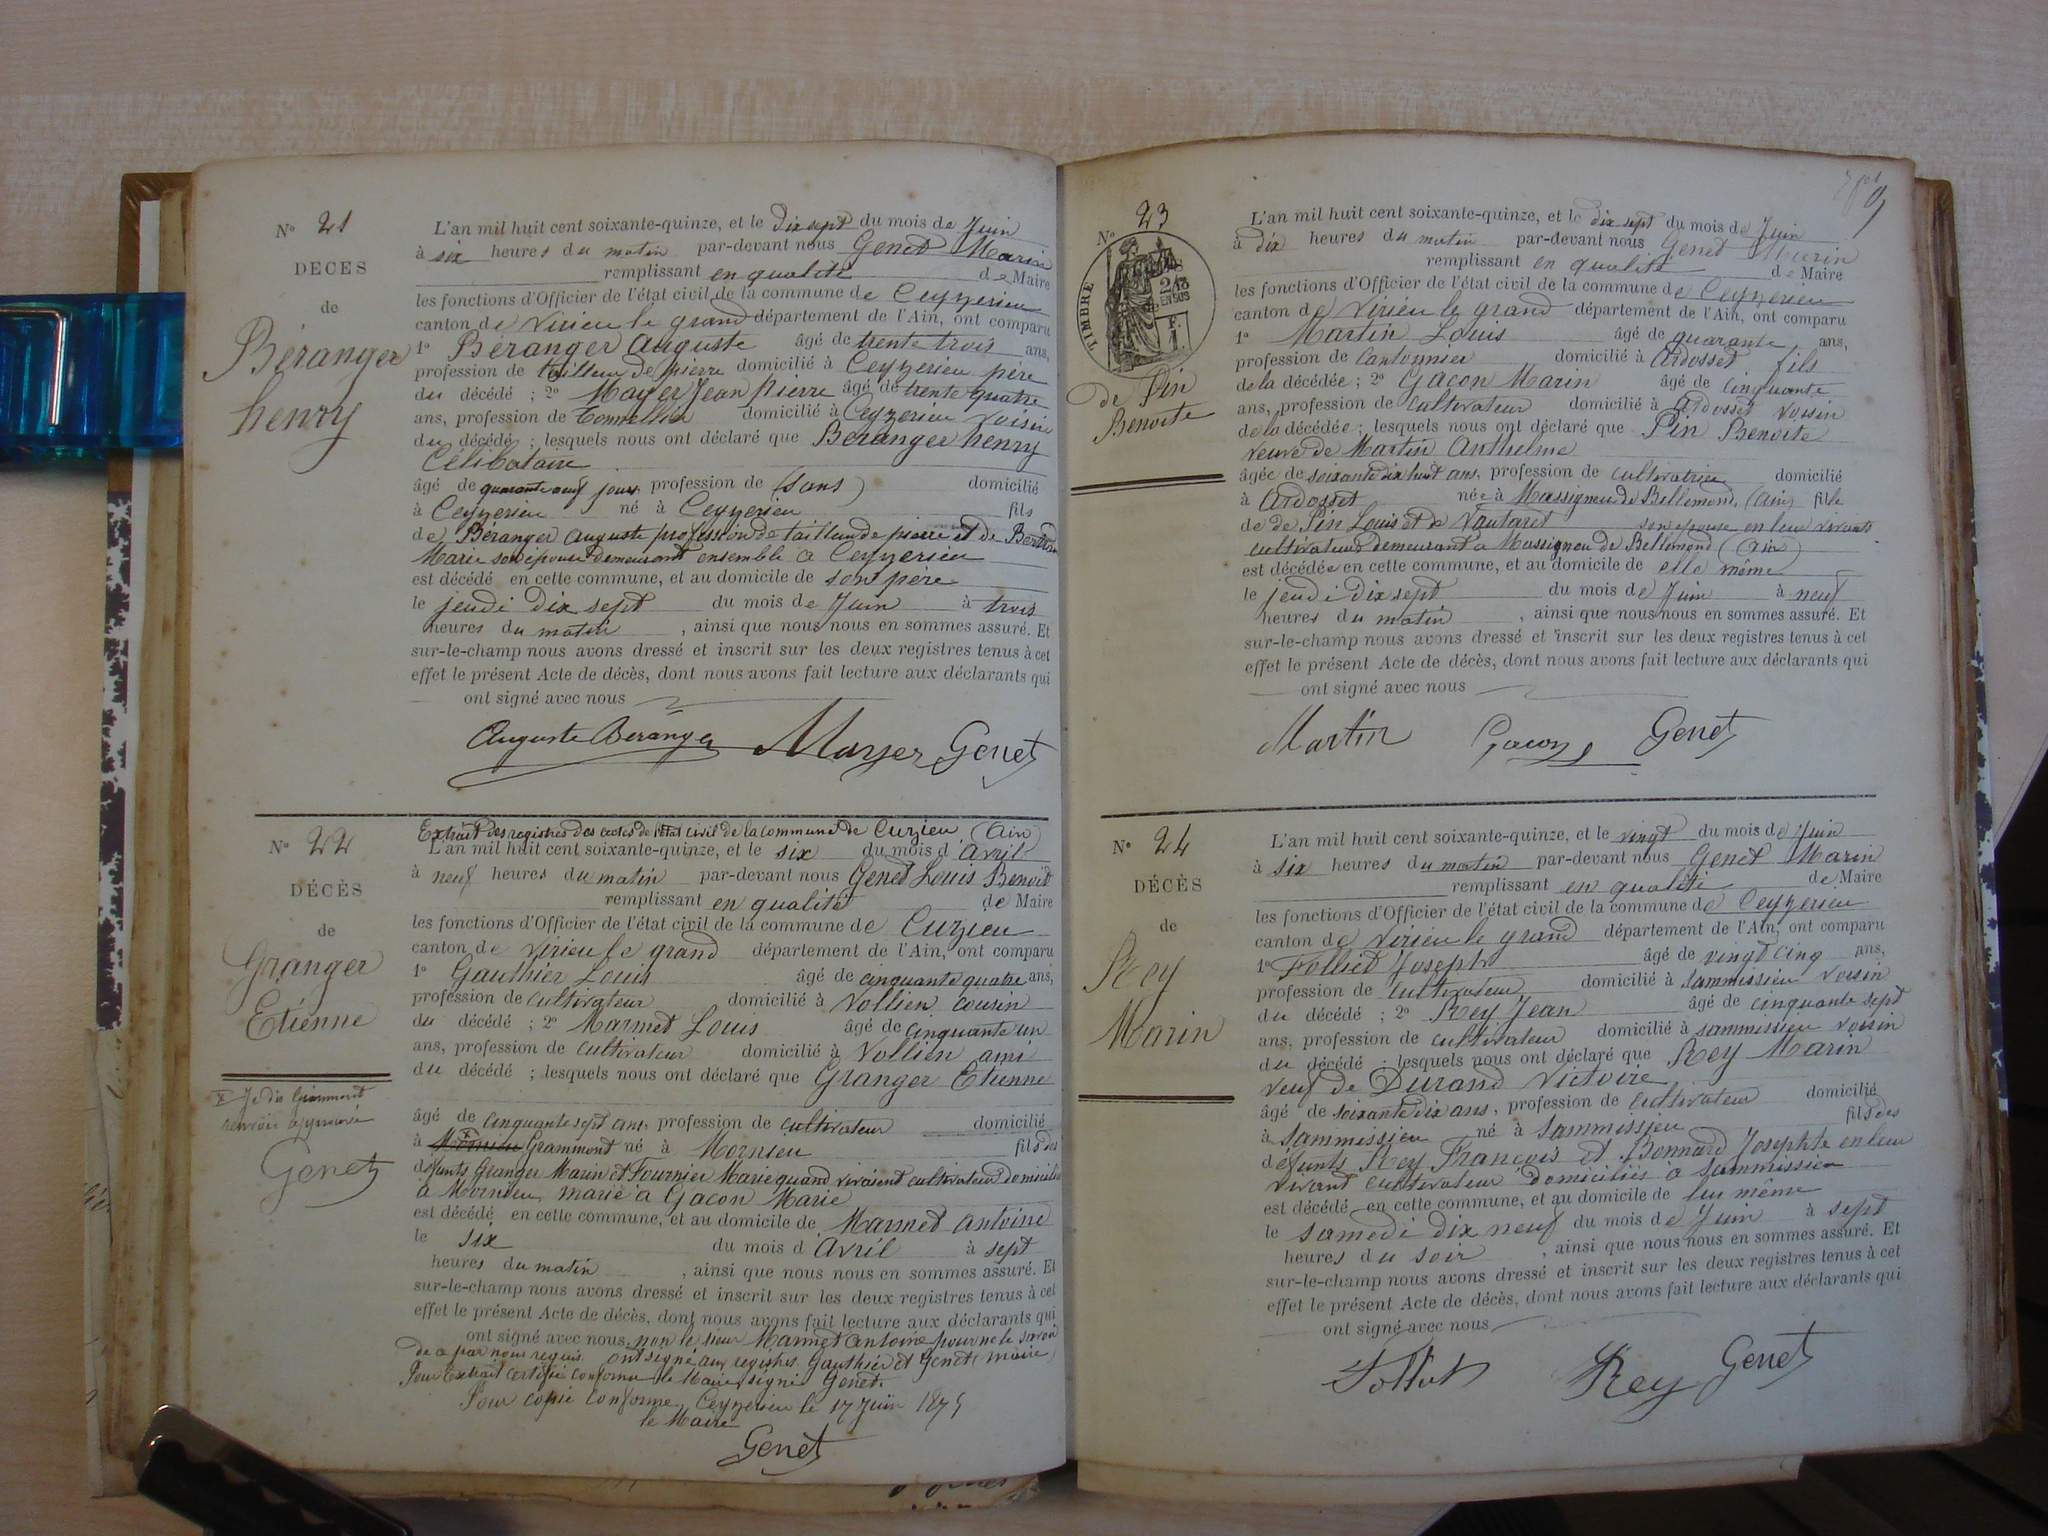 N° 21
DÉCÈS
de
Béranger
henry
L'an mil huit cent soixante-quinze, et le Dix sept du mois de Juin
à six heures du matin par-devant nous Genet Marin
remplissant en qualité de Maire
les fonctions d'Officier de l'état civil de la commune de Ceyzerieu
canton de Virieu le grand département de l'Ain, ont comparu
1° Béranger Auguste âgé de trente trois ans,
profession de tailleur de pierre domicilié à Ceyzerieu père
du décédé ; 2° Mayer Jean Pierre âgé de trente quatre
ans, profession de domicilié à Ceyzerieu voisin
du décédé ; lesquels nous ont déclaré que Béranger henry
Célibataire
âgé de quarante neuf jours, profession de (sans) domicilié
à Ceyzerieu né à Ceyzerieu fils
de Béranger Auguste profession de tailleur de pierre et de
Marie son épouse demeurant ensemble à Ceyzerieu
est décédé en cette commune, et au domicile de son père
le jeudi dix sept du mois de Juin à trois
heures du matin, ainsi que nous nous en sommes assuré. Et
sur-le-champ nous avons dressé et inscrit sur les deux registres tenus à cet
effet le présent Acte de décès, dont nous avons fait lecture aux déclarants qui
ont signé avec nous
Auguste Béranger Mayer Genet
N° 22
DÉCÈS
de
Granger
Etienne
X Je dis Grammont
renvoi approuvé
Genet
Extrait des registres des actes de l'état civil de la commune de Cuzieu (Ain)
L'an mil huit cent soixante-quinze, et le six du mois d'Avril
à neuf heures du matin par-devant nous Genet Louis Benoit
remplissant en qualité de Maire
les fonctions d'Officier de l'état civil de la commune de Cuzieu
canton de Virieu le grand département de l'Ain, ont comparu
1° Gauthier Louis âgé de cinquante quatre ans,
profession de cultivateur domicilié à Vollien cousin
du décédé ; 2° Marmet Louis âgé de cinquante un
ans, profession de cultivateur domicilié à Vollien ami
du décédé ; lesquels nous ont déclaré que Granger Etienne
âgé de cinquante sept ans, profession de cultivateur domicilié
à Mornieu Grammont né à Mornieu fils des
défunts Granger Marin et Fournier Marie quand vivaient cultivateurs domiciliés
à Mornieu, marié à Gacon Marie
est décédé en cette commune, et au domicile de Marmet Antoine
le six du mois d'Avril à sept
heures du matin, ainsi que nous nous en sommes assuré. Et
sur-le-champ nous avons dressé et inscrit sur les deux registres tenus à cet
effet le présent Acte de décès, dont nous avons fait lecture aux déclarants qui
ont signé avec nous, non le sieur Marmet Antoine pour ne le savoir
de ce par nous requis. ont signé aux registres Gauthier et Genet (maire)
Pour Extrait certifié conforme le Maire, signé Genet.
Pour copie conforme, Ceyzerieu le 17 Juin 1875
le Maire
Genet
N° 23
TIMBRE
2/10
EN SUS
de Pin
Benoite
L'an mil huit cent soixante-quinze, et le dix sept du mois de Juin
à dix heures du matin par-devant nous Genet Marin
remplissant en qualité de Maire
les fonctions d'Officier de l'état civil de la commune de Ceyzerieu
canton de Virieu le grand département de l'Ain, ont comparu
1° Martin Louis âgé de quarante ans,
profession de Cantonnier domicilié à Ardosset fils
de la décédée ; 2° Gacon Marin âgé de cinquante
ans, profession de cultivateur domicilié à Ardosset voisin
de la décédée ; lesquels nous ont déclaré que Pin Benoite
veuve de Martin Anthelme
âgée de soixante dix huit ans, profession de cultivatrice domicilié
à Ardosset née à Massignieu de Bellemond, (Ain) fille
de de Pin Louis et de Vautaret son épouse en leur vivants
cultivateurs demeurant à Massignieu de Bellemond (Ain)
est décédée en cette commune, et au domicile de elle même
le jeudi dix sept du mois de Juin à neuf
heures du matin, ainsi que nous nous en sommes assuré. Et
sur-le-champ nous avons dressé et inscrit sur les deux registres tenus à cet
effet le présent Acte de décès, dont nous avons fait lecture aux déclarants qui
ont signé avec nous
Martin Gacon Genet
N° 24
DÉCÈS
de
Rey
Marin
L'an mil huit cent soixante-quinze, et le vingt du mois de Juin
à six heures du matin par-devant nous Genet Marin
remplissant en qualité de Maire
les fonctions d'Officier de l'état civil de la commune de Ceyzerieu
canton de Virieu le grand département de l'Ain, ont comparu
1° Folliet Joseph âgé de vingt cinq ans,
profession de cultivateur domicilié à Sammissieu voisin
du décédé ; 2° Rey Jean âgé de cinquante sept
ans, profession de cultivateur domicilié à Sammissieu voisin
du décédé ; lesquels nous ont déclaré que Rey Marin
veuf de Durand Victoire
âgé de soixante dix ans, profession de cultivateur domicilié
à Sammissieu né à Sammissieu fils des
défunts Rey François et Bonnard Josephte en leur
vivant cultivateur domiciliés à Sammissieu
est décédé en cette commune, et au domicile de lui même
le samedi dix neuf du mois de Juin à sept
heures du soir, ainsi que nous nous en sommes assuré. Et
sur-le-champ nous avons dressé et inscrit sur les deux registres tenus à cet
effet le présent Acte de décès, dont nous avons fait lecture aux déclarants qui
ont signé avec nous
Folliet Rey Genet